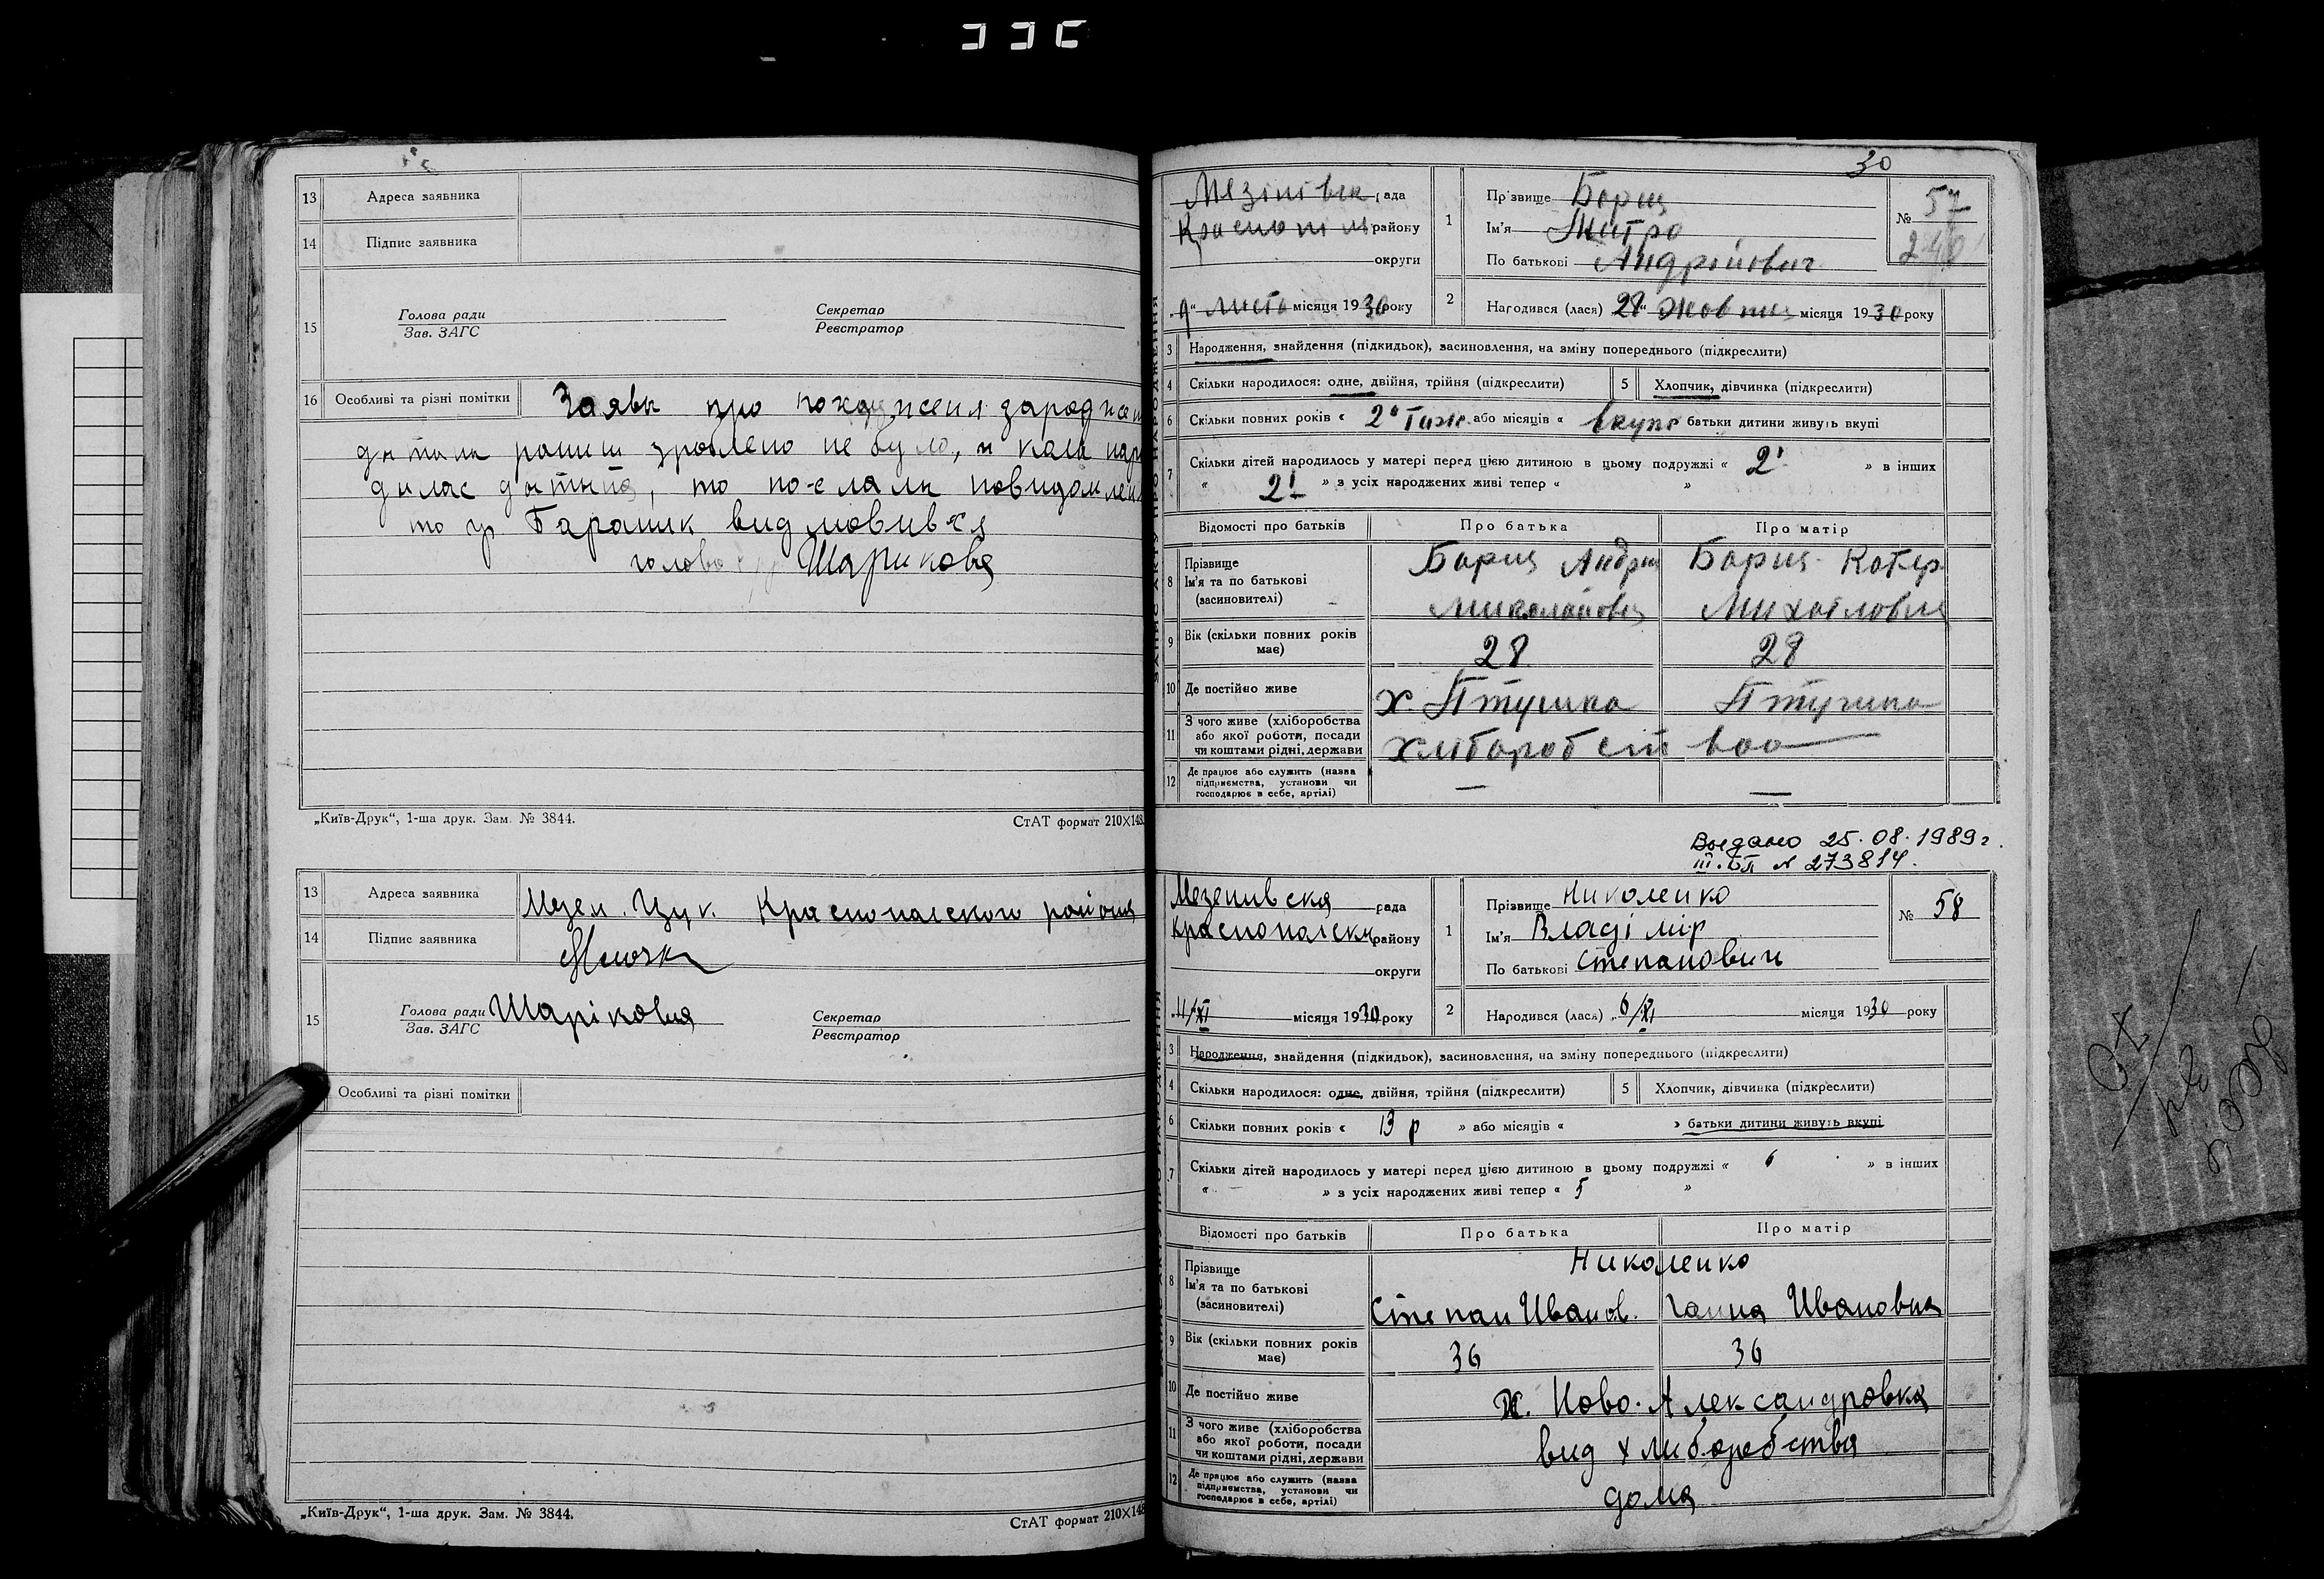 13 Адреса заявника
14 Підпис заявника
15 Голова ради Секретар
Зав. ЗАГС Реєстратор
16 Особливі та різні помітки Заявы про
дытыны раниш зроблено не було, и кола
дилас дытына, то
то гр. Бараник видмовився
голова Шарикова
„Київ-Друк“, 1-ша друк. Зам. № 3844. СтАТ формат 210×148.
13 Адреса заявника Мезен. Цук. Краснопаlского района
14 Підпис заявника
15 Голова ради Шарікова Секретар
Зав. ЗАГС Реєстратор
Особливі та різні помітки
„Київ-Друк“, 1-ша друк. Зам. № 3844. СтАТ формат 210×148
30
Мезінівск рада
Краснопіл району
округи
1 Прізвище Борщ
Ім'я Митро
По батькові Андрійович
№ 57
240
„9“ листо місяця 1930 року
2 Народився (лася) 28 „ Жовтня місяця 1930 року
3 Народження, знайдення (підкидьок), засиновлення, на зміну попереднього (підкреслити)
4 Скільки народилося: одне, двійня, трійня (підкреслити) 5 Хлопчик, дівчинка (підкреслити)
6 Скільки повних років « або місяців « вкупі батьки дитини живуть вкупі
7 Скільки дітей народилось у матері перед цією дитиною в цьому подружжі « 2 » в інших
« 2 » з усіх народжених живі тепер « »
Відомості про батьків Про батька Про матір
8 Прізвище Борщ Андрій Борщ Катер
Ім'я та по батькові
(засиновителі) Миколайович Михайловна
9 Вік (скільки повних років має) 28 28
10 Де постійно живе х. Птушка Птушка
11 З чого живе (хліборобства або якої роботи, посади чи коштами рідні, держави хліборобство
12 Де працює або служить (назва підприємства, установи чи господарює в себе, артілі) — —
Выдано 25.08.1989г.
III-БП № 273814.
Мезенивская рада
Краснопольски району
округи
1 Прізвище Николенко
Ім'я Владімір
По батькові Степанович
№ 58
„11/XI місяця 1930 року
2 Народився (лася) „6/XI місяця 1930 року
3 Народження, знайдення (підкидьок), засиновлення, на зміну попереднього (підкреслити)
4 Скільки народилося: одне, двійня, трійня (підкреслити) 5 Хлопчик, дівчинка (підкреслити)
6 Скільки повних років « 13 р » або місяців « » батьки дитини живуть вкупі
7 Скільки дітей народилось у матері перед цією дитиною в цьому подружжі « 6 » в інших
« — » з усіх народжених живі тепер « 5 »
Відомості про батьків Про батька Про матір
8 Прізвище Николенко
Ім'я та по батькові
(засиновителі) Степан Иванов. Ганна Ивановна
9 Вік (скільки повних років має) 36 36
10 Де постійно живе х. Ново-Александровка
11 З чого живе (хліборобства або якої роботи, посади чи коштами рідні, держави вид хлиборобства
12 Де працює або служить (назва підприємства, установи чи господарює в себе, артілі) дома